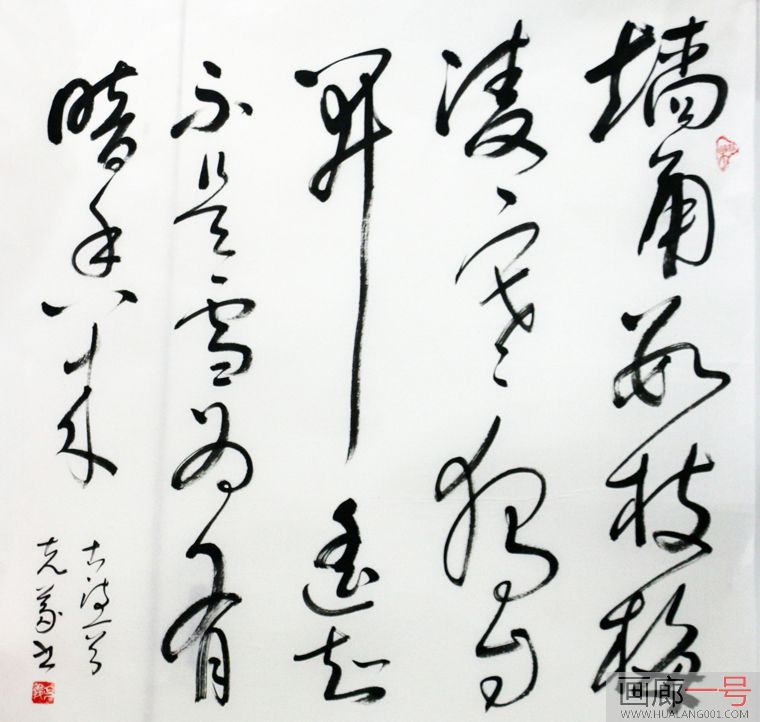 墙角数枝梅
凌寒独自
開遥知
不是雪为有
暗香来
古诗一首
克 书
画廊一号
WWW.HUALANG001.COM